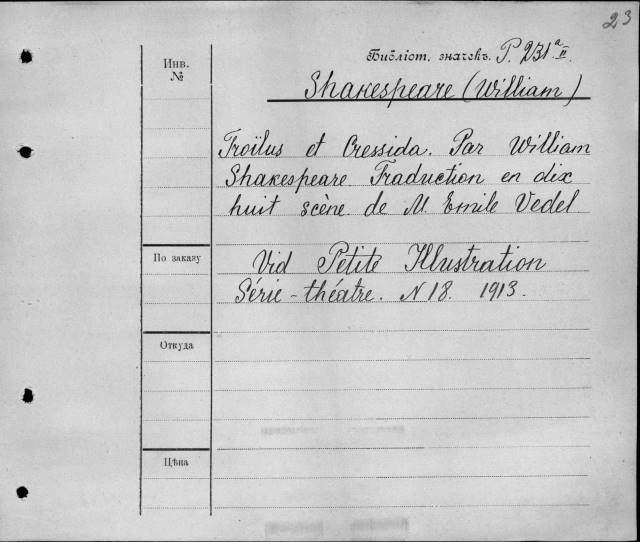 23
Библіот. значекъ. P. 231ª II.
Инв.
№
Shakespeare (William)
Troïlus et Cressida. Par William
Shakespeare Traduction en dix
huit scène de M. Emile Vedel
По заказу
Vid Petite Illustration
Série-théatre. N 18. 1913.
Откуда
Цѣна